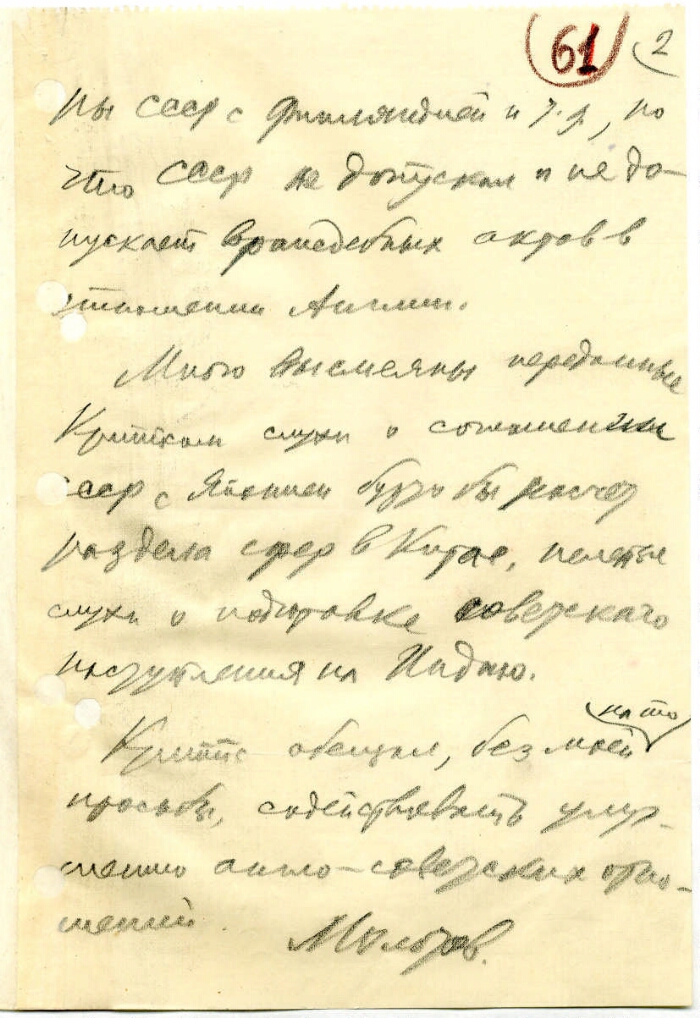 61 2
ны СССР с Финляндией и т.д., но
что СССР не допускал и не до-
пускает враждебных актов в
отношении Англии.
Мною высмеяны переданные
Криппсом слухи о соглашении
СССР с Японией будто бы насчет
раздела сфер в Китае, нелепые
слухи о подготовке советского
наступления на Индию.
на то
Криппс обещал, без моей
просьбы, содействовать улуч-
шению англо-советских отно-
шений.
Молотов.